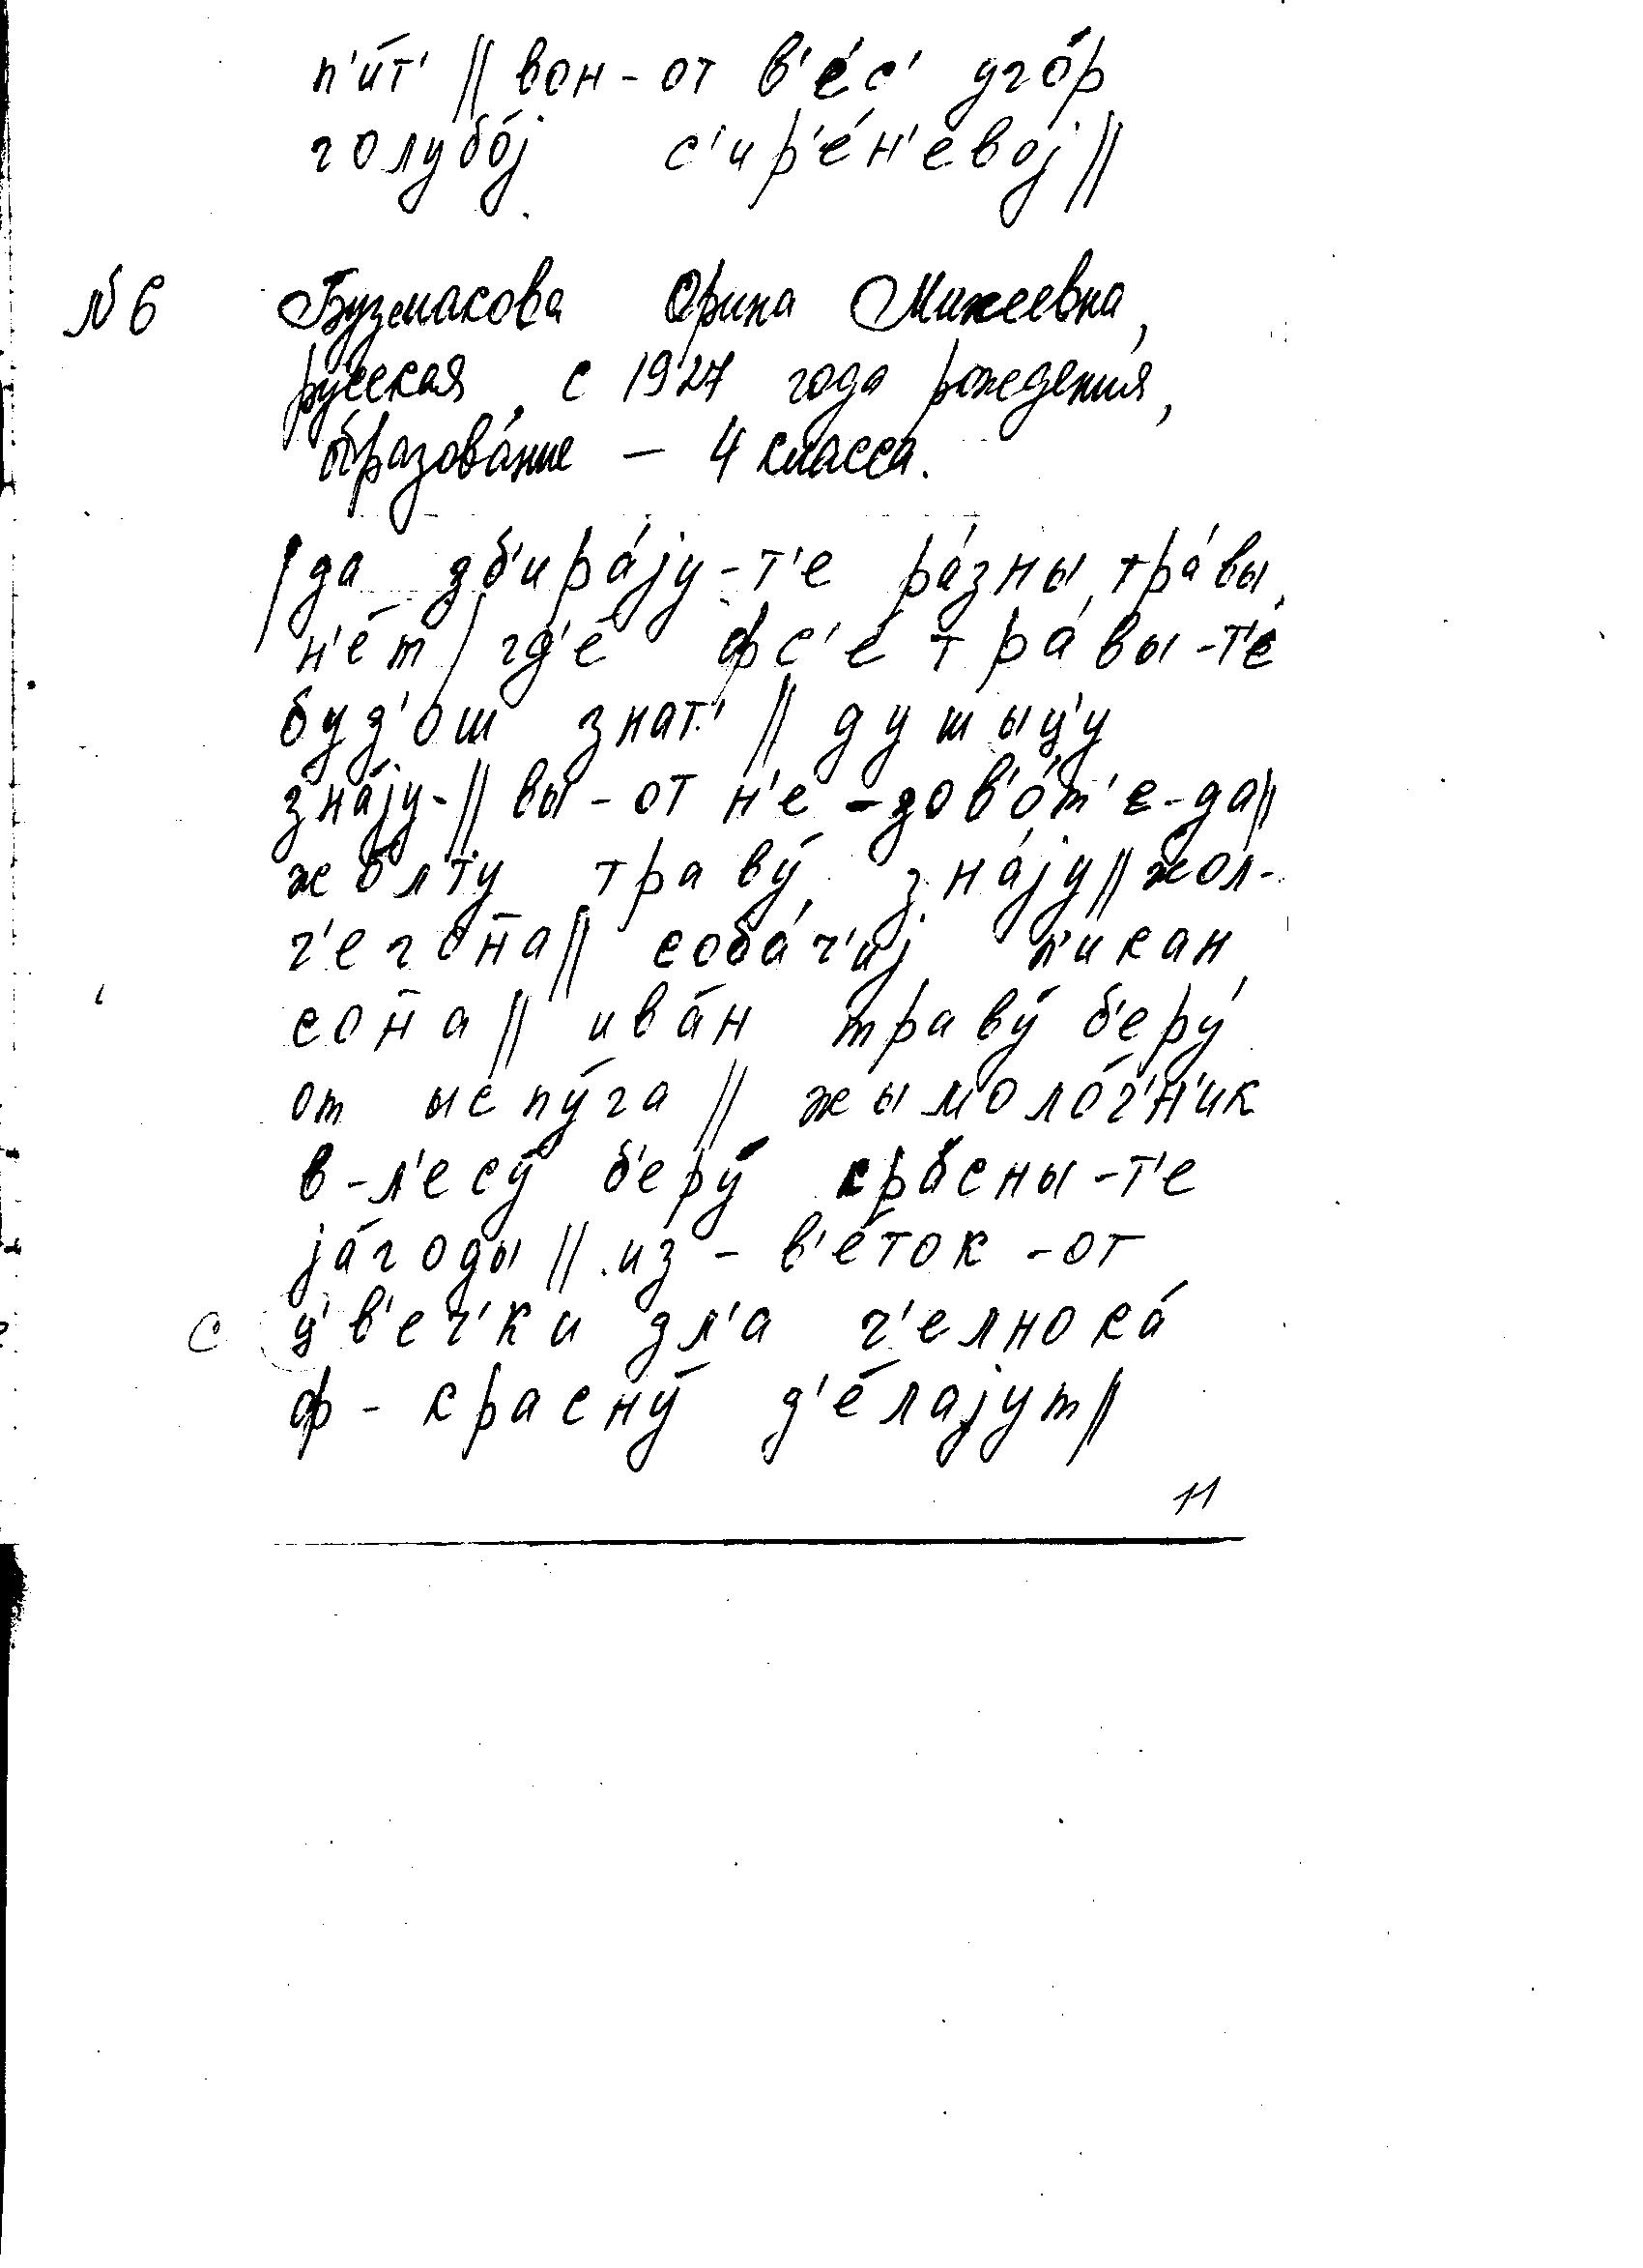 п'и́т' || вон-от в'е́с' уго́р
голубо́j с'ир'е́н'евоj ||
№ 6 Бузмакова Орина Михеевна,
русская, с 1927 года рождения,
образова́ние – 4 класса.
| да зб'ира́jу-т'е ра́зны тра́вы
н'е́т | гд'е́ фс'е́ тра́вы-т'е
буд'ош знат' || душыц'у
зна́jу-|| вы-от н'е-зов'о́т'е-да ||
жо́лту траву́ зна́jу || жол-
г'его́на || соба́ч'иj п'икан
со́на || ива́н траву́ б'еру́
от ыспу́га || жымоло́с'н'ик
в-л'есу́ б'еру́ кра́сны-т'е
jа́годы || из-в'е́ток-от
с ц'в'еч'ки дл'а ч'елнока́
ф-красну́ д'е́лаjут ||
11